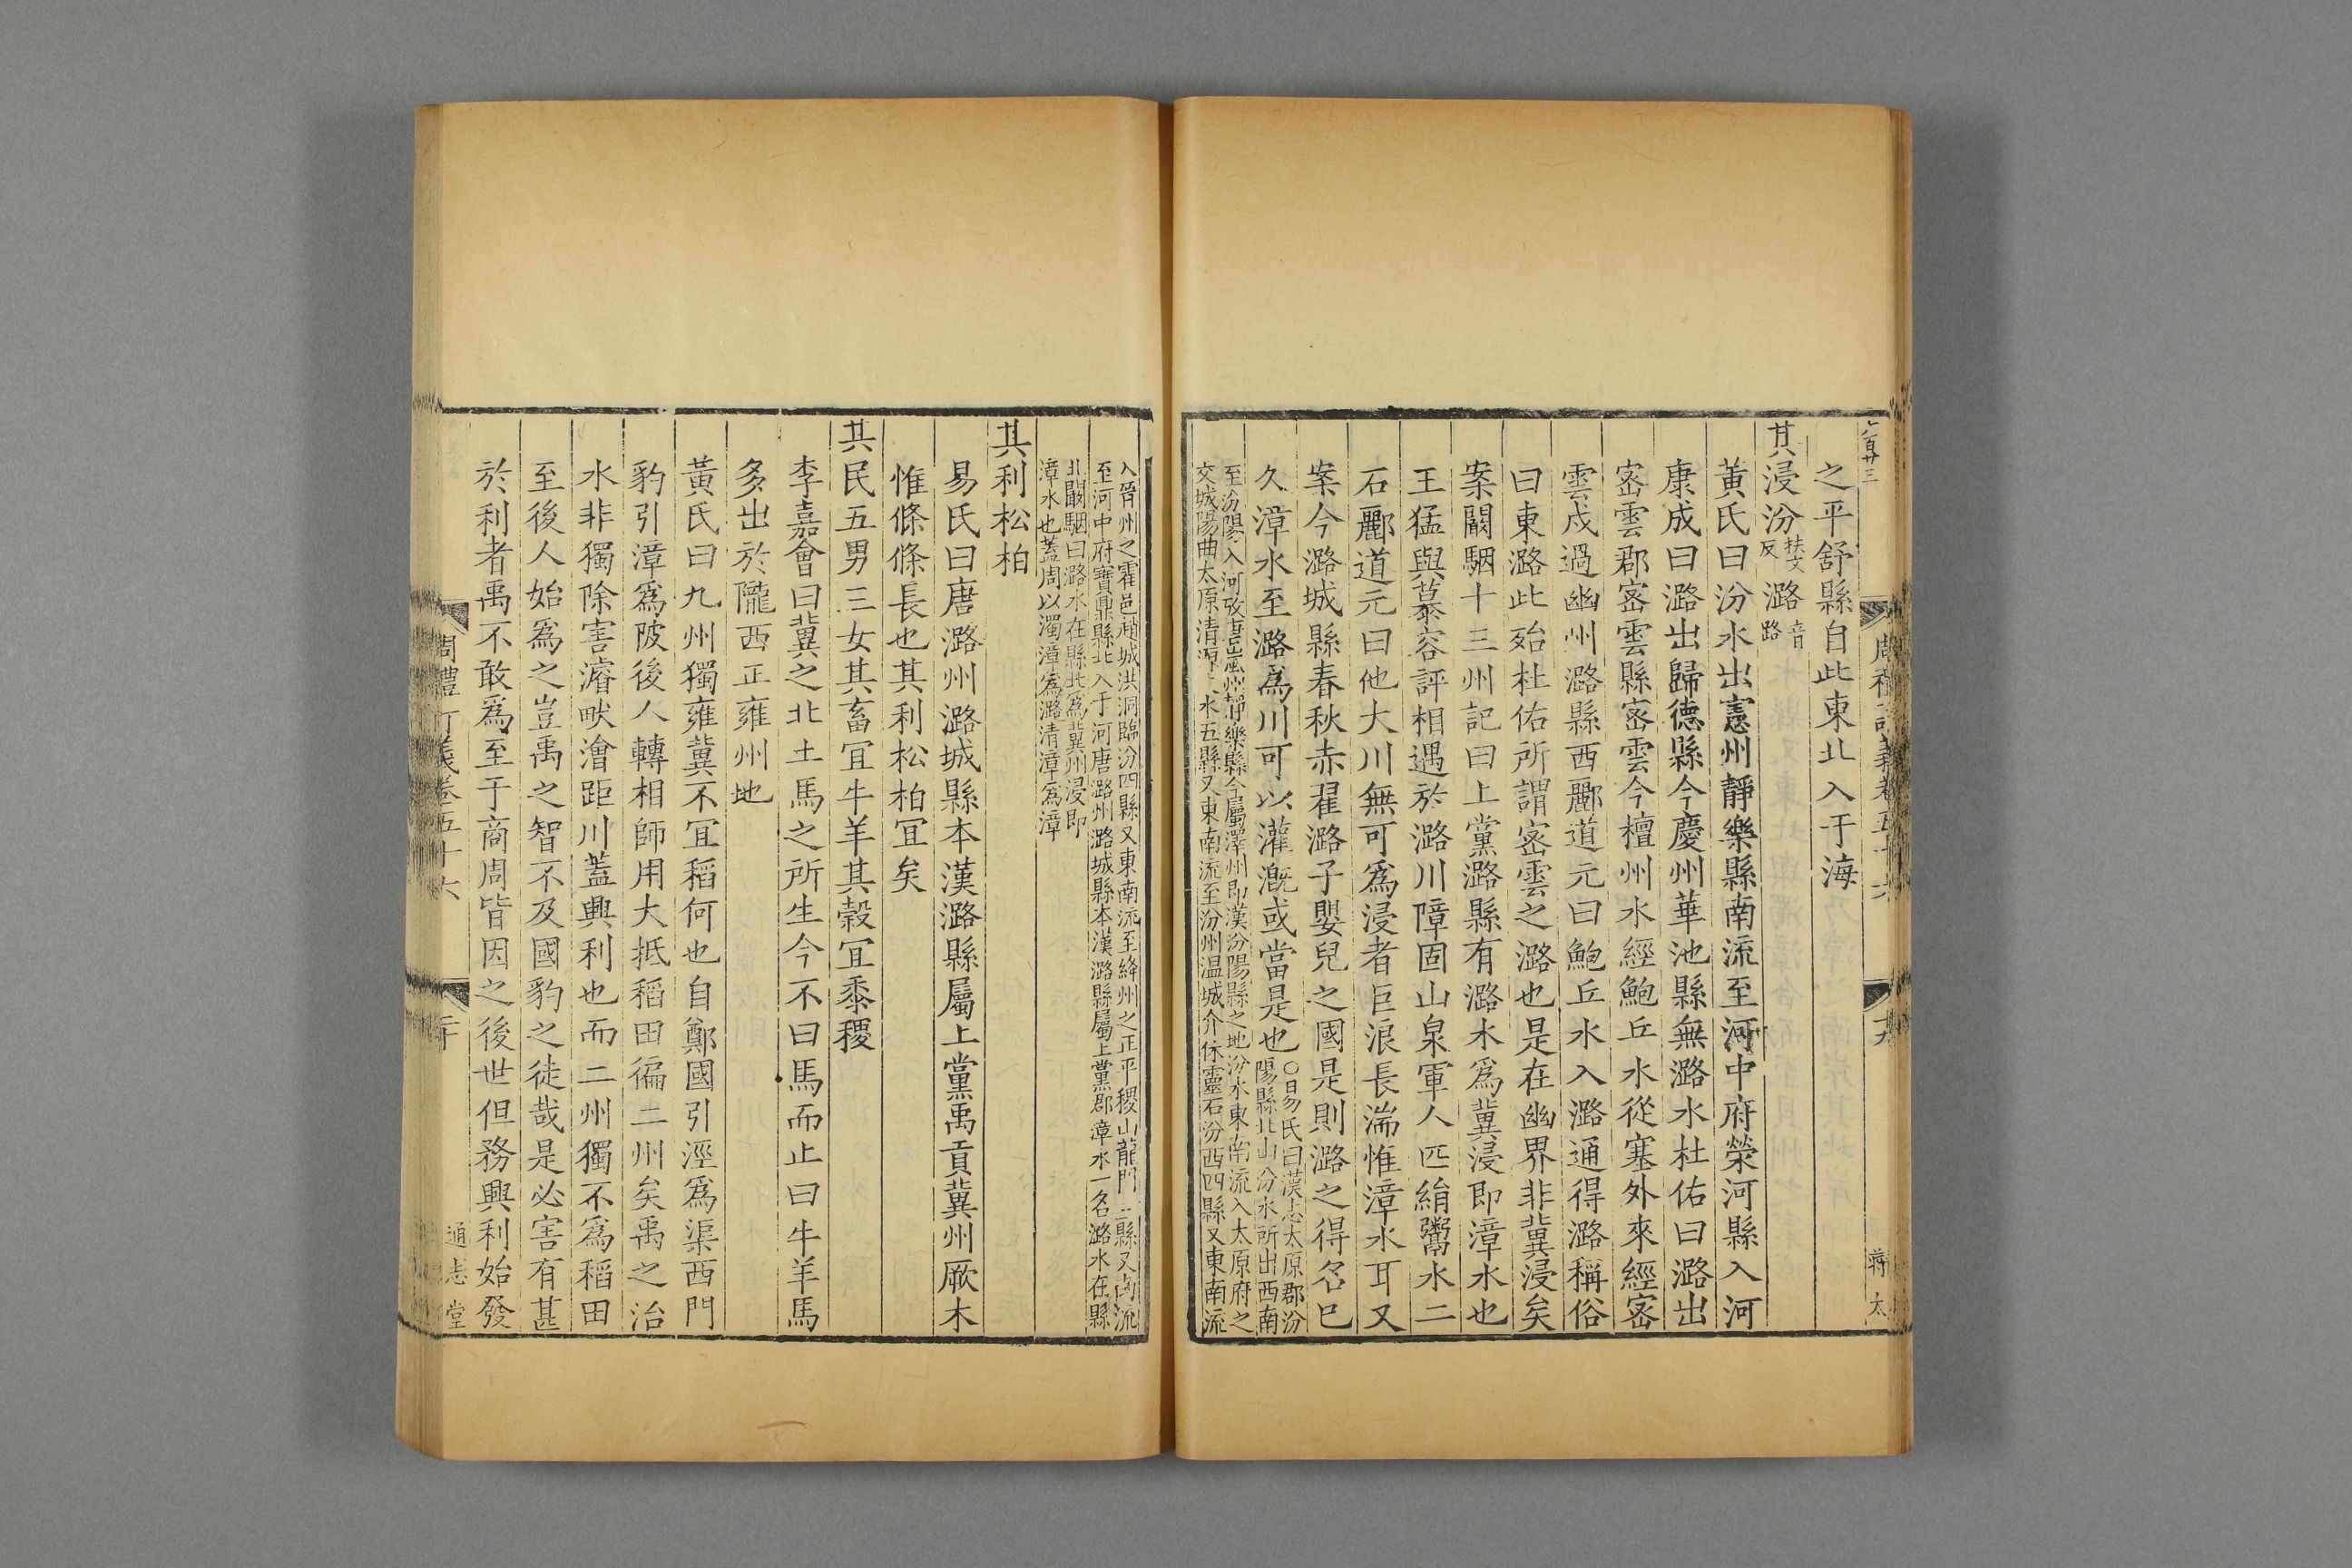 之平舒縣自此東北入于海
其浸汾扶文反潞音路
黃氏曰汾水出憲州靜樂縣南流至河中府榮河縣入河
康成曰潞出歸德縣今慶州華池縣無潞水杜佑曰潞出
密雲郡密雲縣密雲今檀州水經鮑丘水從塞外來經密
雲戍過幽州潞縣西酈道元曰鮑丘水入潞通得潞稱俗
曰東潞此殆杜佑所謂密雲之潞也是在幽界非冀浸矣
案闞駰十三州記曰上黨潞縣有潞水為冀浸即漳水也
王猛與慕容評相遇於潞川障固山泉軍人匹絹鬻水二
石酈道元曰他大川無可為浸者巨浪長湍惟漳水耳又
案今潞城縣春秋赤翟潞子嬰兒之國是則潞之得名已
久漳水至潞為川可以灌漑或當是也○易氏曰漢志太原郡汾
陽縣北山汾水所出西南
至汾陽入河攷唐嵐州靜樂縣今屬澤州即漢汾陽縣之地汾水東南流入太原府之
交城陽曲太原清源文水五縣又東南流至汾州温城介休靈石汾西四縣又東南流
入晉州之霍邑趙城洪洞臨汾四縣又東南流至絳州之正平稷山龍門三縣又南流
至河中府寶鼎縣北入于河唐潞州潞城縣本漢潞縣屬上黨郡漳水一名潞水在縣
北闞駰曰潞水在縣北為冀州浸即
漳水也蓋周以濁漳為潞清漳為漳
其利松柏
易氏曰唐潞州潞城縣本漢潞縣屬上黨禹貢冀州厥木
惟條條長也其利松柏宜矣
其民五男三女其畜宜牛羊其穀宜黍稷
李嘉會曰冀之北土馬之所生今不曰馬而止曰牛羊馬
多出於隴西正雍州地
黃氏曰九州獨雍冀不宜稻何也自鄭國引涇為渠西門
豹引漳為陂後人轉相師用大抵稻田徧二州矣禹之治
水非獨除害濬畎澮距川蓋興利也而二州獨不為稻田
至後人始為之豈禹之智不及國豹之徒哉是必害有甚
於利者禹不敢為至于商周皆因之後世但務興利始發
周禮訂義卷五十六
二十
通志堂